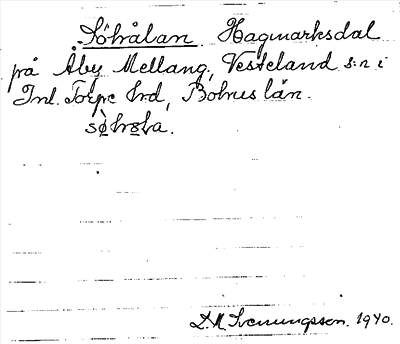 Söhålan. Hagmarksdal
på Åby Mellang, Vesteland s:n i
Inl. Torpe hrd, Bohus län.
D.M. Svenungsson. 1940.